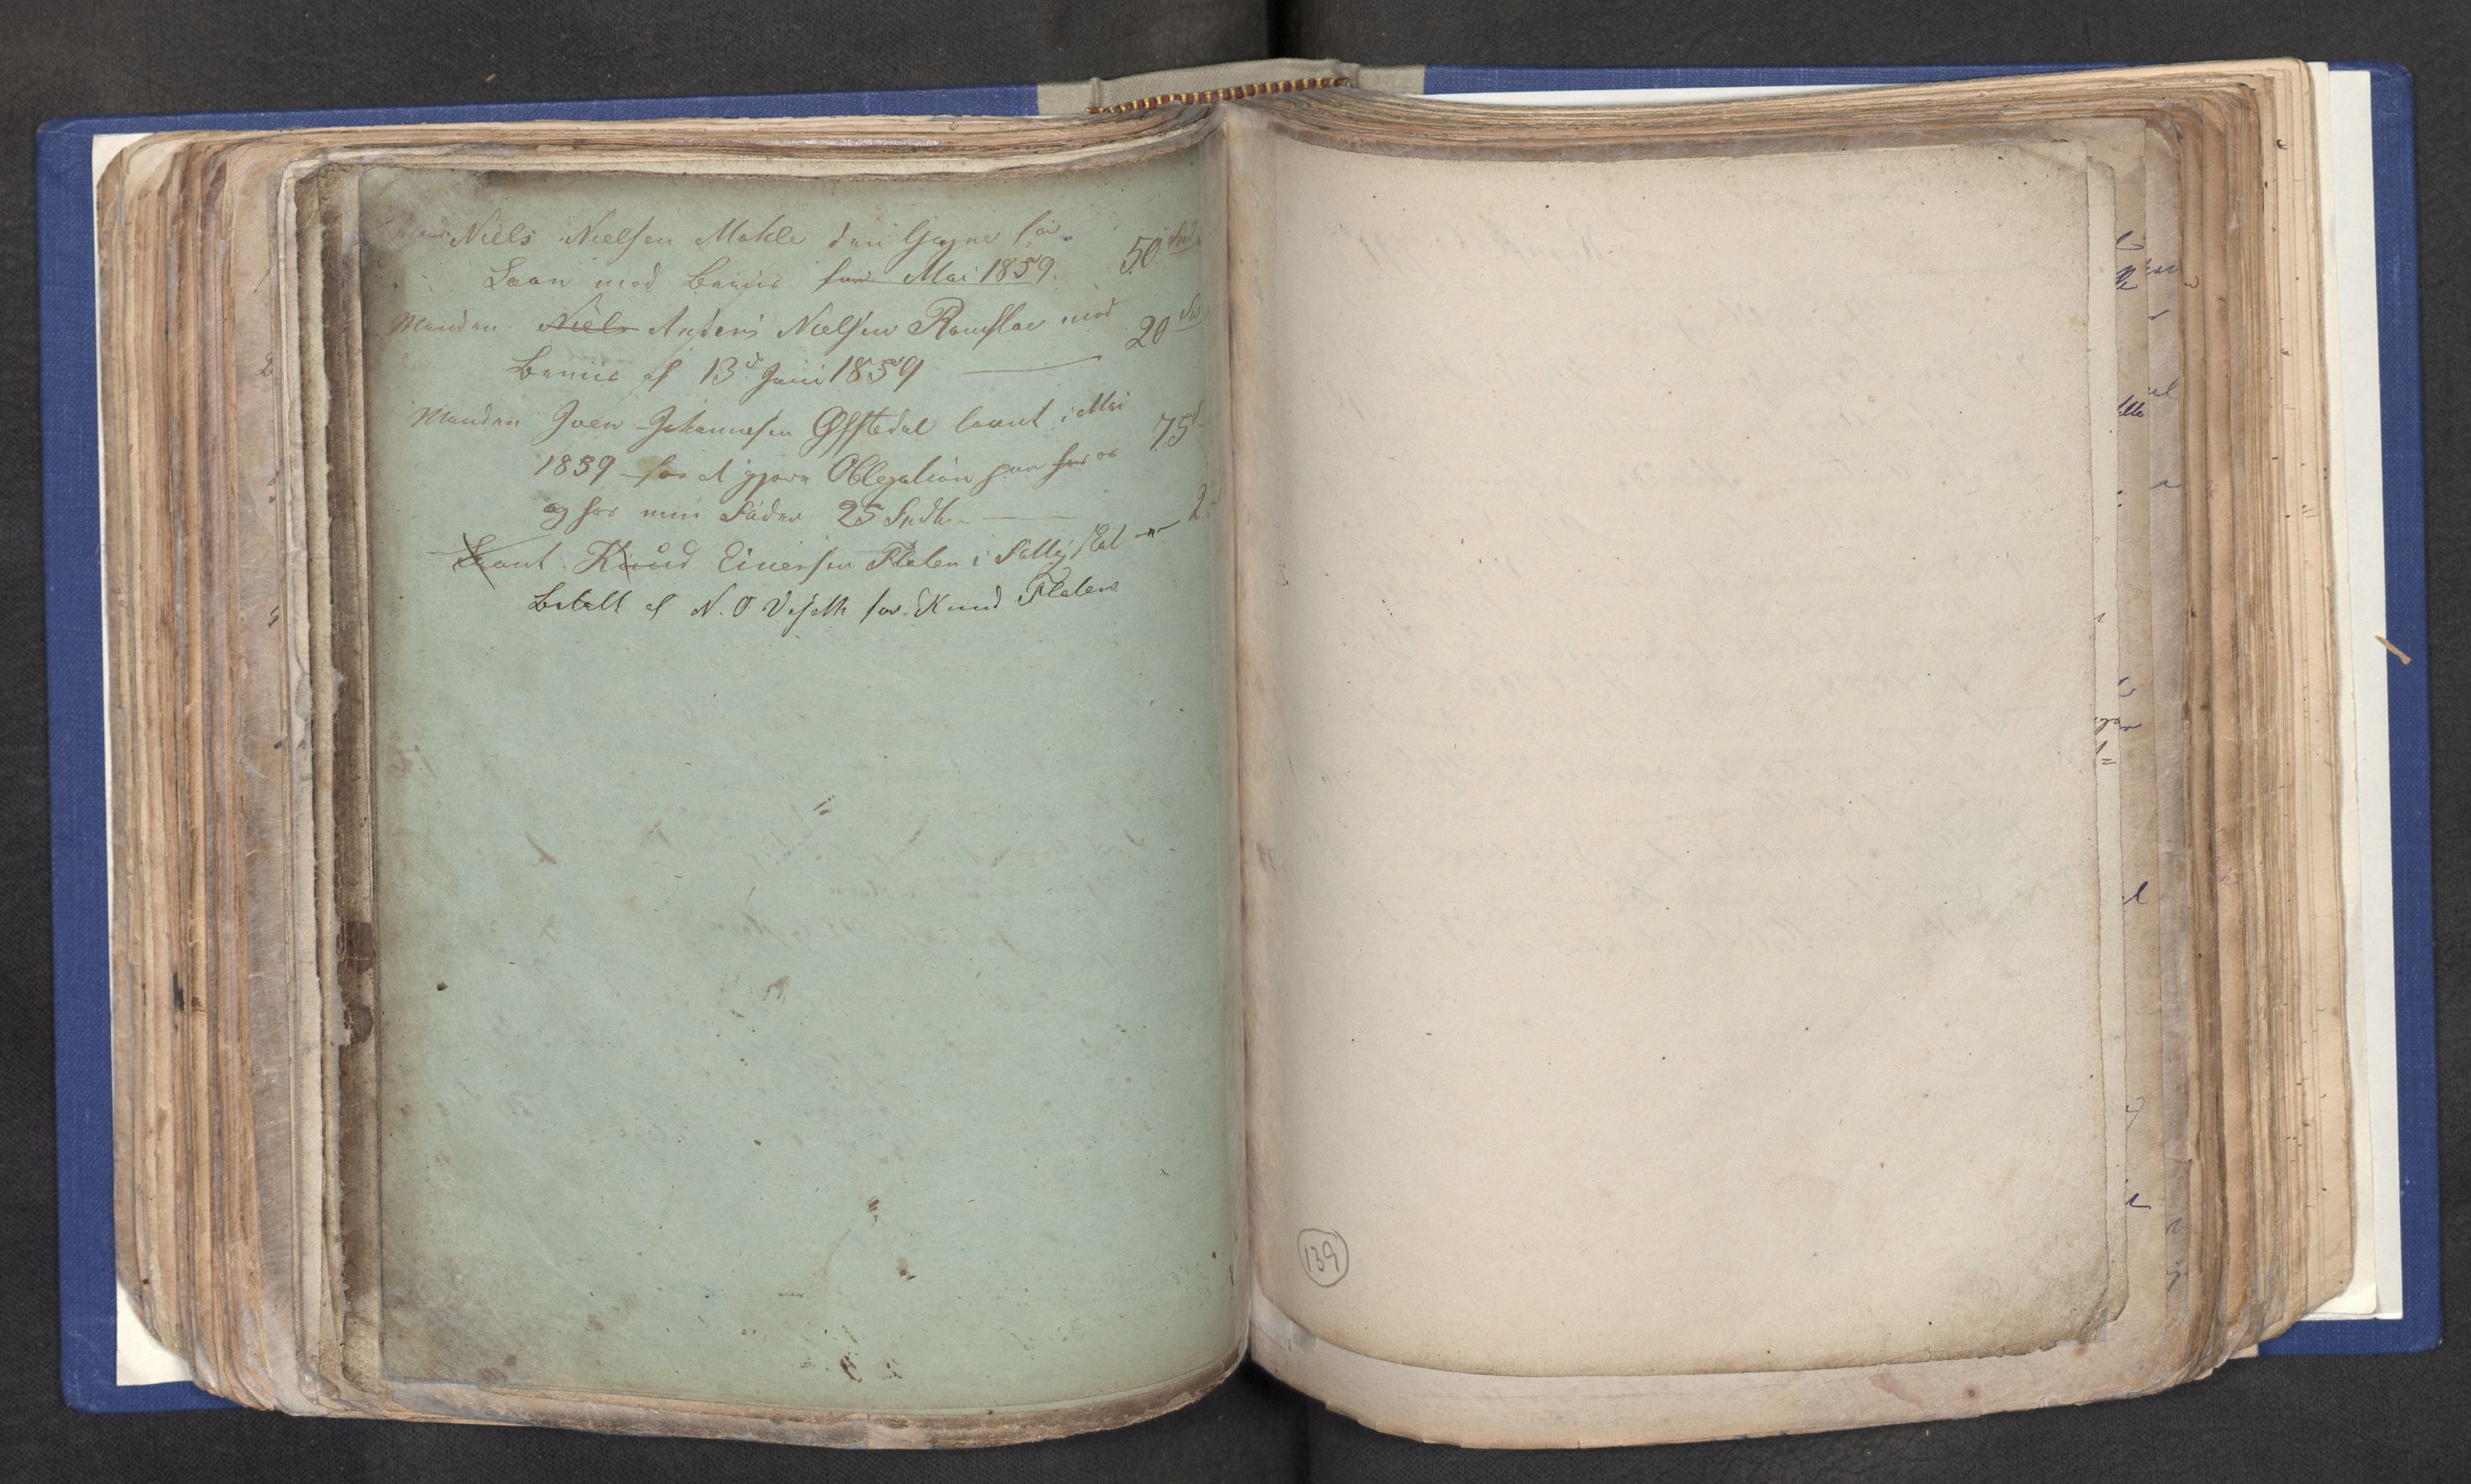 Manden Niels Nielsen Mokle den Yngre for
Laan mod Beviis for Mai 1859. 50 Spd
Manden Niels Anders Nielsen Ramsloe mod
Beviis af 13d Juni 1859 — 20 Sp
Manden Joen Johannesen Øffstedal laant i Mai
1859 for at gjøre Oblegation paa for os 75
og for min Fader 25 Spdlr — 
Laant Knud Einersen Flaten i Sælbustad 2
Betalt af N. O Veseth for Knud Flaten
139